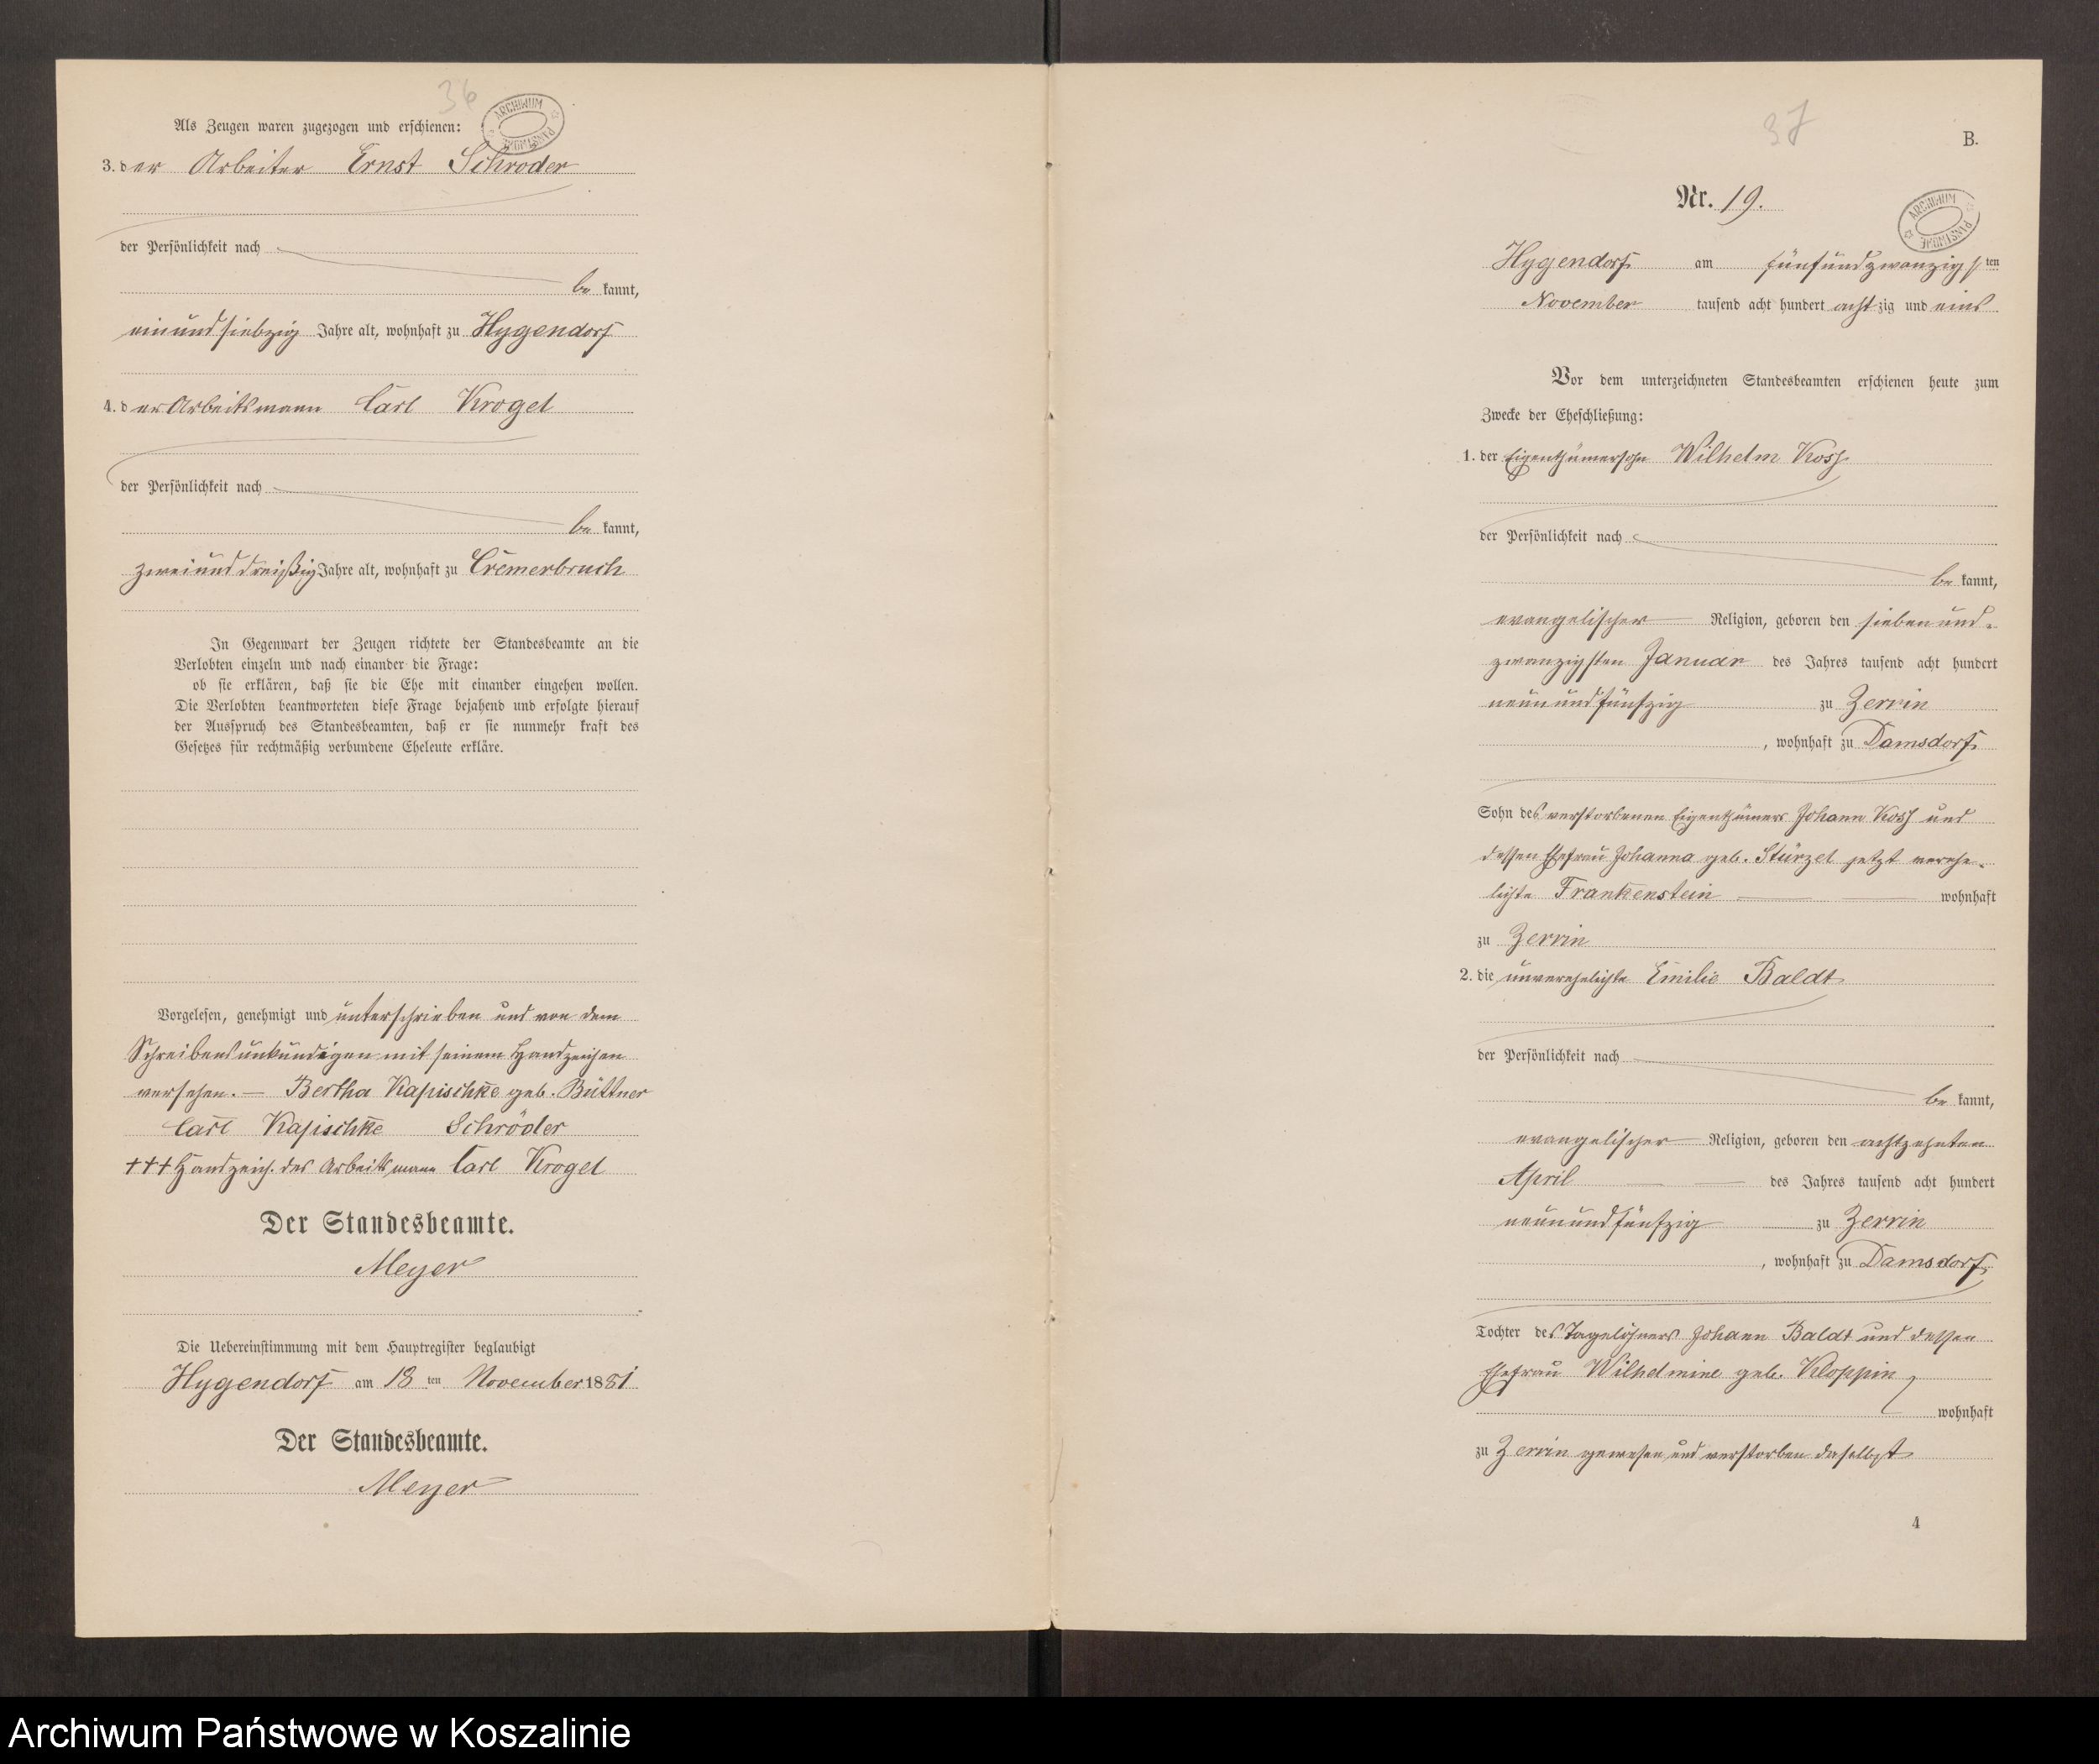 36
ARCHIWUM PAŃSTWOWE
Als Zeugen waren zugezogen und erschienen:
3. der Arbeiter Ernst Schröder
der Persönlichkeit nach
be kannt,
einundsiebzig Jahre alt, wohnhaft zu Hygendorf
4. der Arbeitsmann Carl Krogel
der Persönlichkeit nach
be kannt,
zweiunddreißig Jahre alt, wohnhaft zu Cremerbruch
In Gegenwart der Zeugen richtete der Standesbeamte an die
Verlobten einzeln und nach einander die Frage:
ob sie erklären, daß sie die Ehe mit einander eingehen wollen.
Die Verlobten beantworteten diese Frage bejahend und erfolgte hierauf
der Ausspruch des Standesbeamten, daß er sie nunmehr kraft des
Gesetzes für rechtmäßig verbundene Eheleute erkläre.
Vorgelesen, genehmigt und unterschrieben und von dem
Schreibensunkundigen mit seinem Handzeichen
versehen. — Bertha Kapischke geb. Büttner
Carl Kapischke Schröder
+++ Handzeich. des Arbeitsmann Carl Krogel
Der Standesbeamte.
Meyer
Die Uebereinstimmung mit dem Hauptregister beglaubigt
Hygendorf am 18 ten November 1881
Der Standesbeamte.
Meyer
37
B.
Nr. 19.
ARCHIWUM PAŃSTWOWE
Hygendorf am fünfundzwanzigsten
November tausend acht hundert achtzig und eins
Vor dem unterzeichneten Standesbeamten erschienen heute zum
Zwecke der Eheschließung:
1. der Eigenthümersohn Wilhelm Koss
der Persönlichkeit nach
be kannt,
evangelischer Religion, geboren den siebenund-
zwanzigsten Januar des Jahres tausend acht hundert
neunundfünfzig zu Zerrin
, wohnhaft zu Damsdorf
Sohn des verstorbenen Eigenthümers Johann Koss und
dessen Ehefrau Johanna geb. Stürzel jetzt verehe-
lichte Frankenstein wohnhaft
zu Zerrin
2. die unverehelichte Emilie Baldt
der Persönlichkeit nach
be kannt,
evangelischer Religion, geboren den achtzehnten
April des Jahres tausend acht hundert
neunundfünfzig zu Zerrin
, wohnhaft zu Damsdorf
Tochter des Tagelöhners Johann Baldt und dessen
Ehefrau Wilhelmine geb. Kloppin
wohnhaft
zu Zerrin gewesen und verstorben daselbst
4
Archiwum Państwowe w Koszalinie